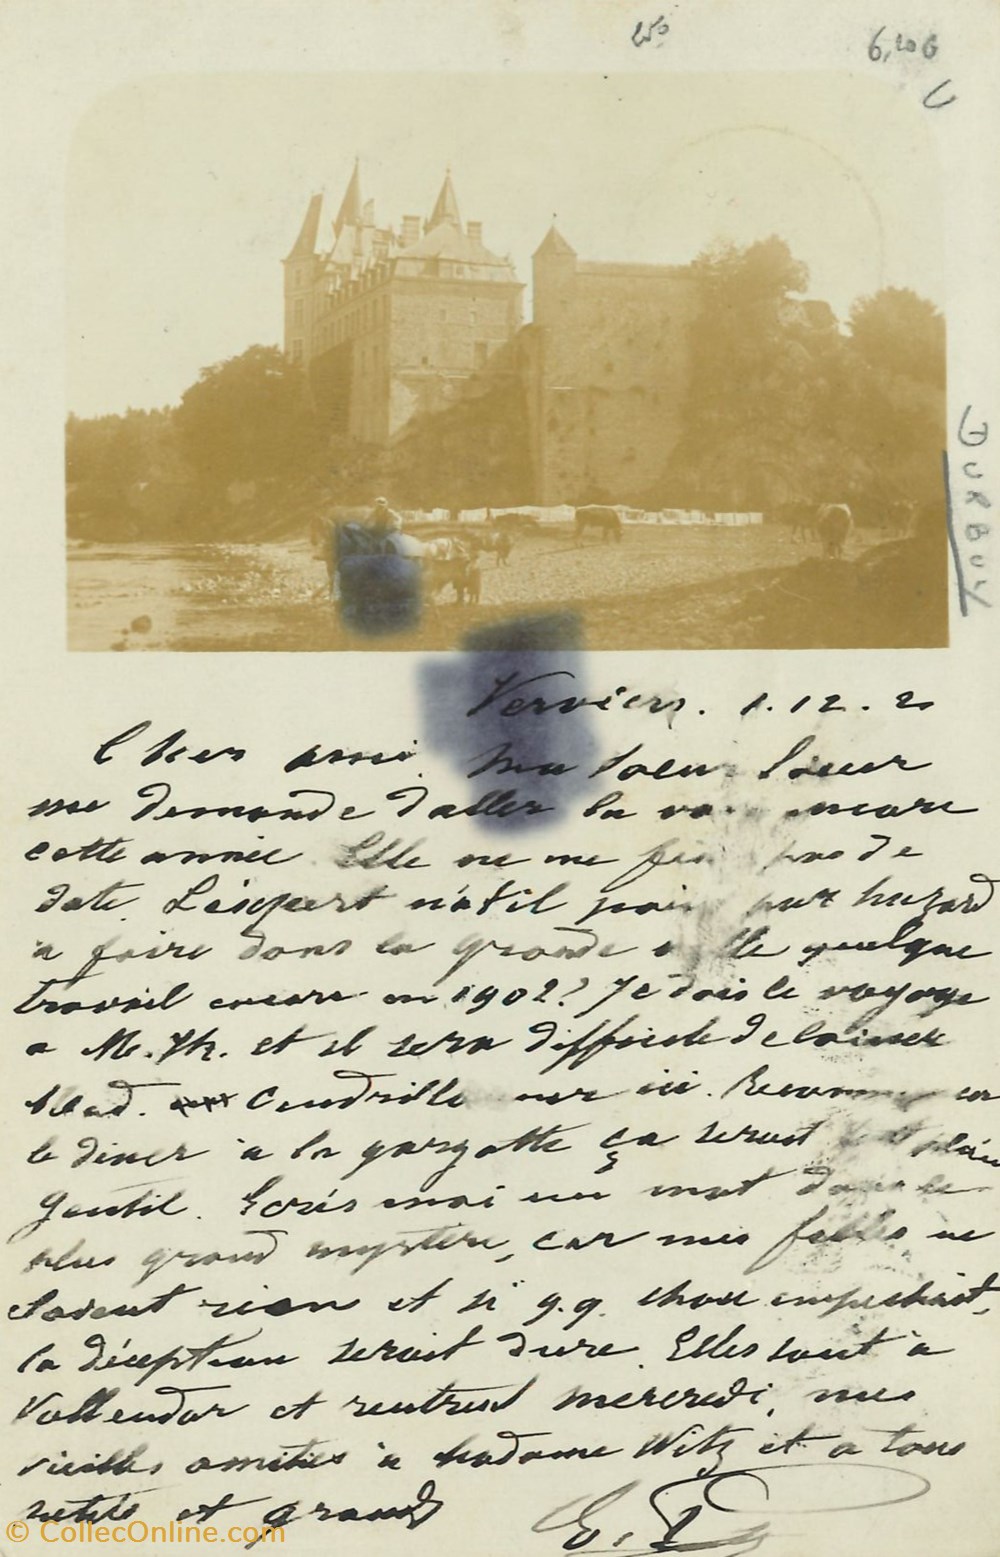 250
6,20 G
DURBUY
Verviers. 1.12.2
Cher ami. Ma soeur Soeur
me demande d'aller la voir encore
cette année. Elle ne me fixe pas de
date. L'expert n'a t'il point par hazard
à faire dans la grande ville quelque
travail encore en 1902? Je dois le voyage
a M. Th. et il sera difficile de laisser
Mad. Cendrillon ici.
le diner à la gargotte ça serait
gentil. Ecris moi un mot dans le
plus grand mystère, car mes filles ne
savent rien et si q.q. chose empechait,
la déception serait dure. Elles sont à
Vallendar et rentrent mercredi, mes
vieilles amitiés à Madame Witz et a tous
petits et grands
© CollecOnline.com